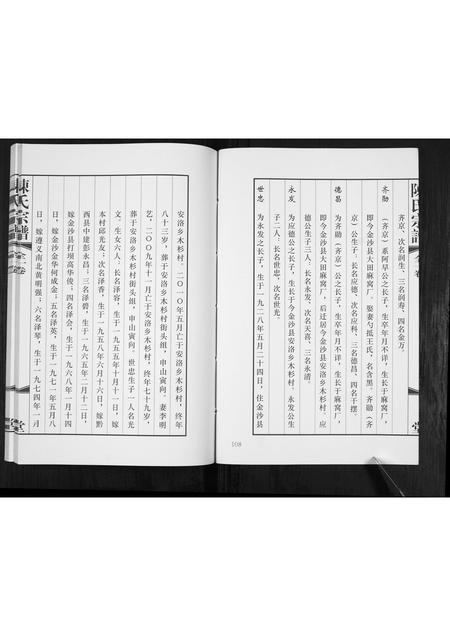 陳氏宗譜
全一卷
堂
齐京、次名润生、三名润寿、四名金万。
齐勋
（齐京）系阿早公之长子，生卒年月不详，生长于麻窝厂，
即今金沙县大田麻窝厂。娶妻勺抵王氏，名含黑。齐勋（齐
京）公生子，长名应德、次名应科、三名德昌、四名干摆。
德昌
为齐勋（齐京）公之长子，生卒年月不详，生长于麻窝厂，
即今金沙县大田麻窝厂，后迁居今金沙县安洛乡木杉村。应
德公生子三人：长名永发、次名天喜、三名永清。
永发
为应德公之长子，生长于今金沙县安洛乡木杉村。永发公生
子二人：长名世忠，次名世光。
世忠
为永发之长子，生于一九二八年五月二十四日，住金沙县
108
安洛乡木杉村。二〇一〇年五月亡于安洛乡木杉村，终年
八十三岁，葬于安洛乡木杉村街头组，申山寅向。妻李明
艺，二〇〇九年十一月亡于安洛乡木杉村，终年七十九岁，
葬于安洛乡木杉村街头组，申山寅向。世忠生子一人名光
文。生女六人：长名泽容，生于一九五五年十月十一日，嫁
本村邱光友；次名泽香，生于一九五八年六月十六日，嫁黔
西县中建彭永昌；三名泽碧，生于一九六五年二月十二日，
嫁金沙县打坝高华俊，四名泽会，生于一九六八年一月十四
日，嫁金沙金华何成金；五名泽英，生于一九七一年五月八
日，嫁遵义南北黄明强；六名泽琴，生于一九七四年一月
陳氏宗譜
全一卷
堂